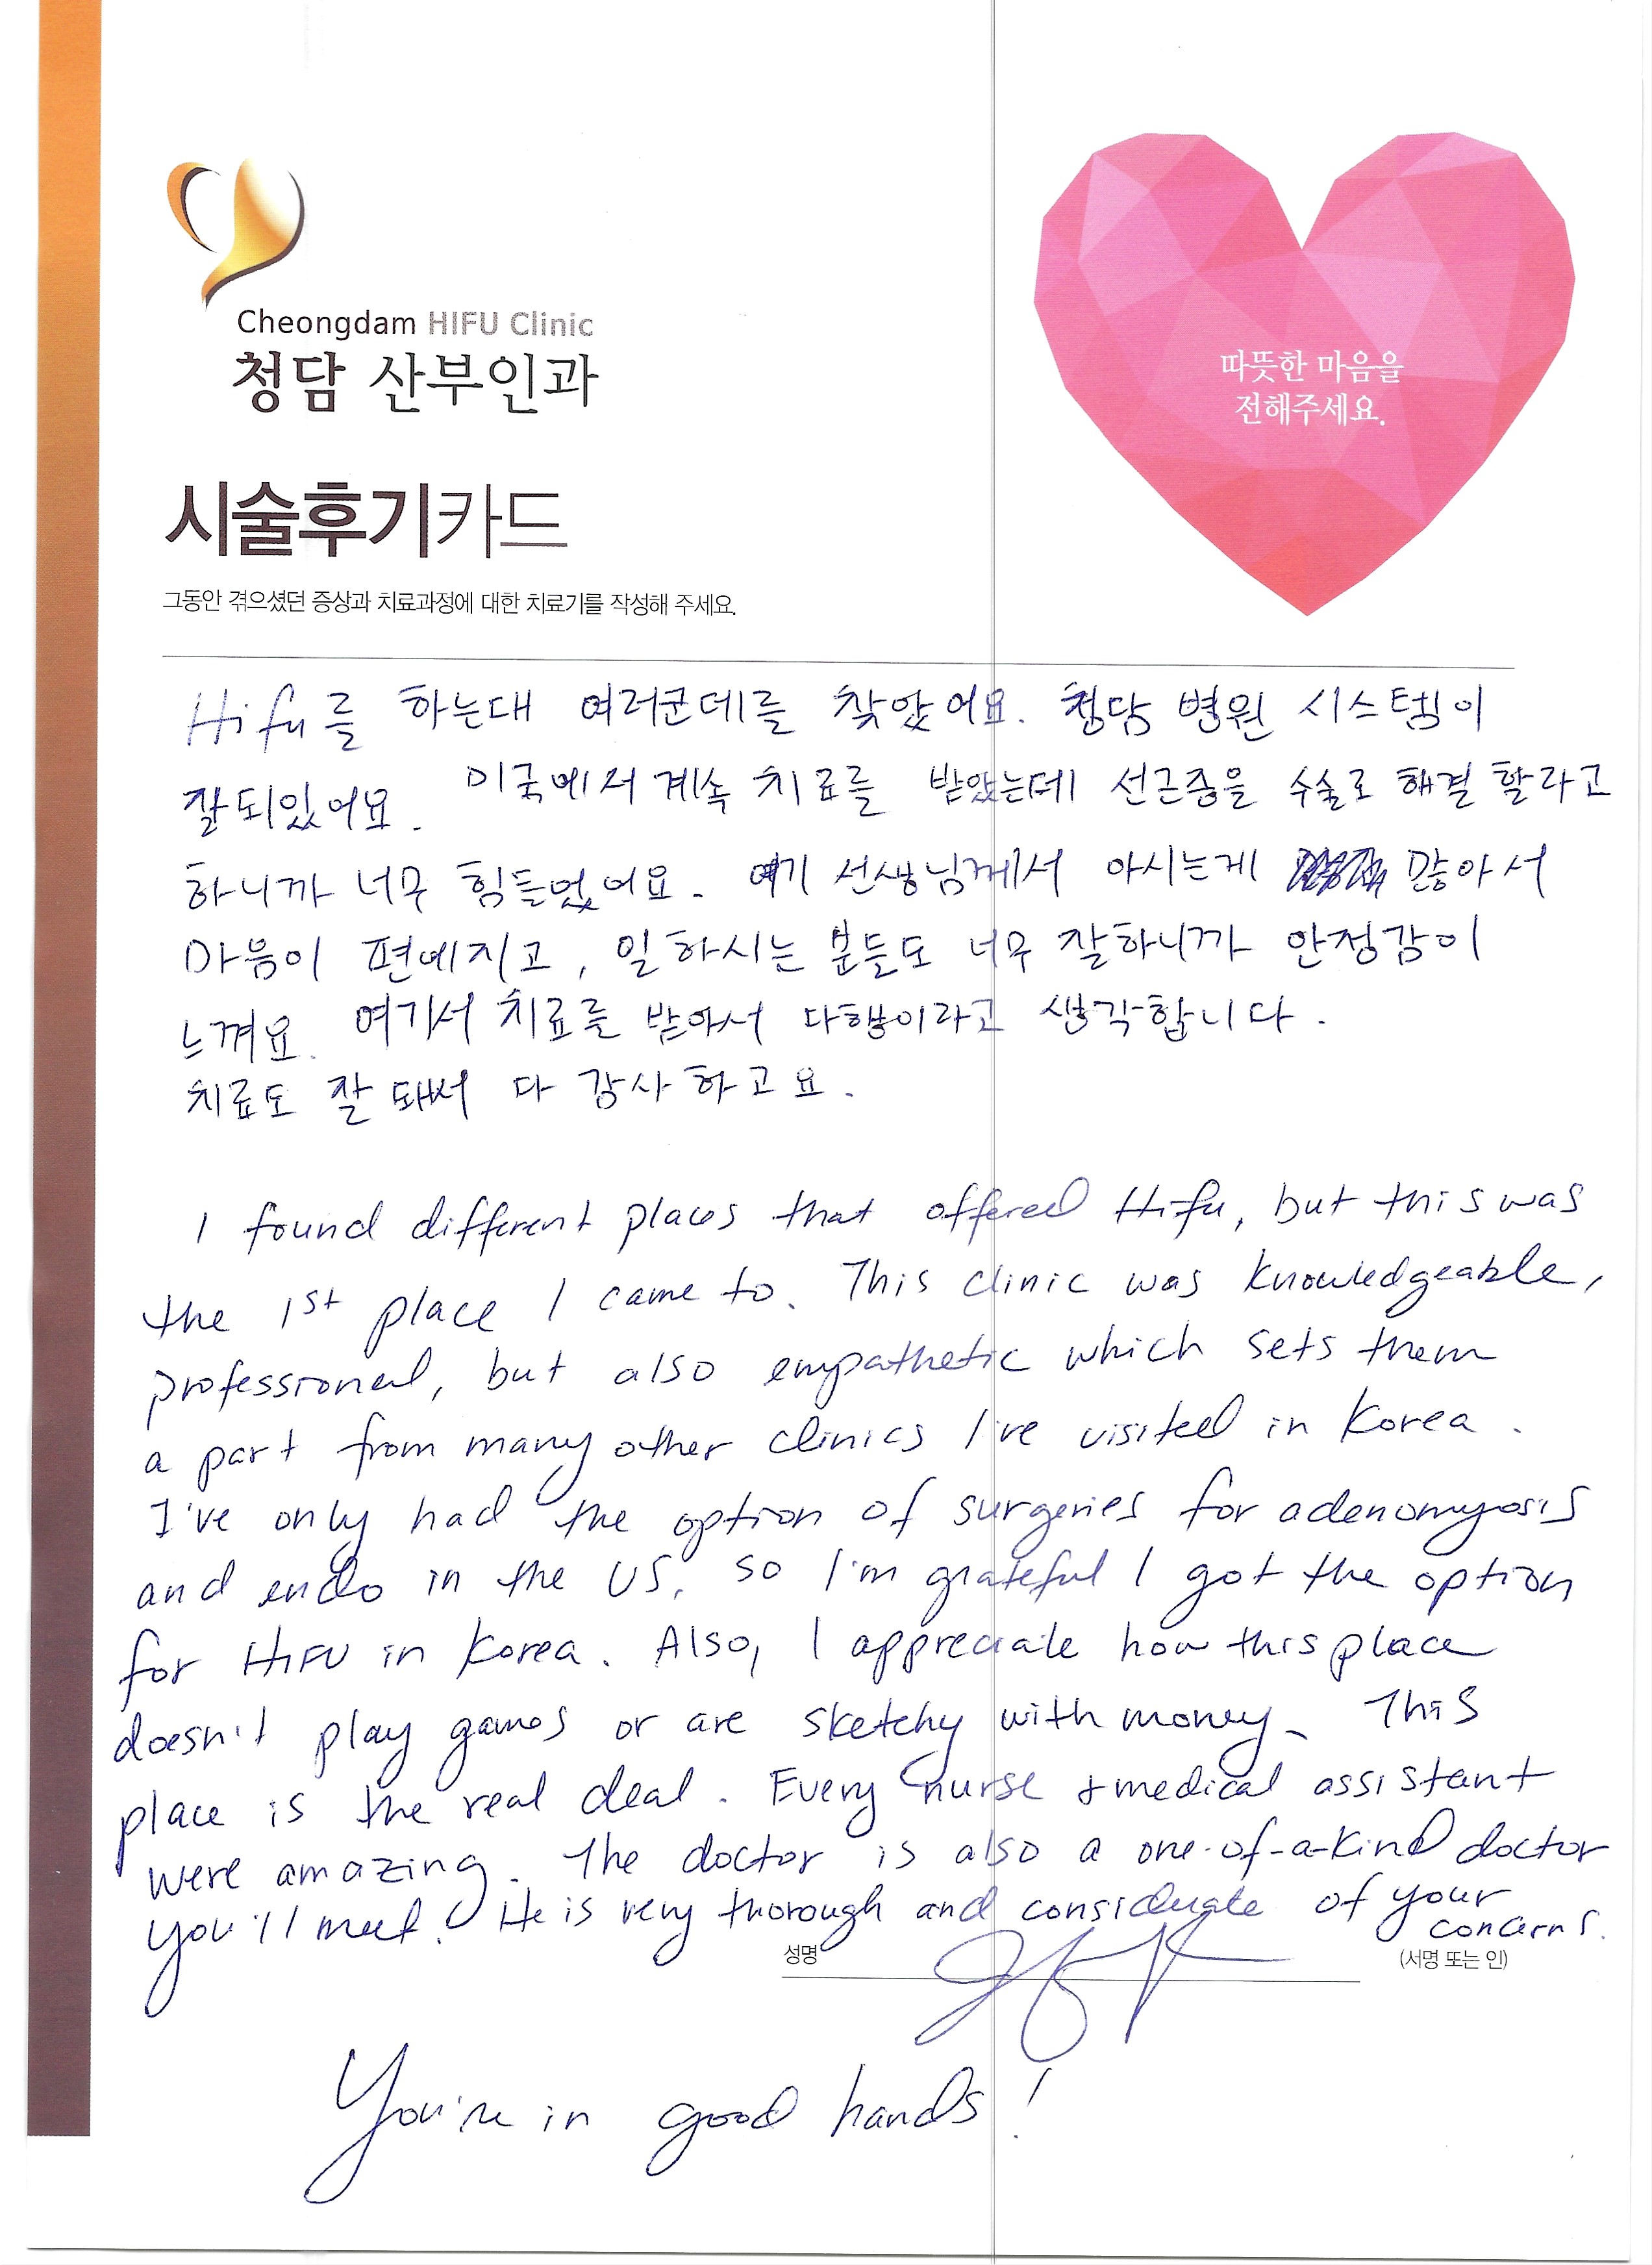 Cheongdam HIFU Clinic
청담 산부인과
따뜻한 마음을
전해주세요.
시술후기카드
그동안 겪으셨던 증상과 치료과정에 대한 치료기를 작성해 주세요.
Hifu를 하는대 여러군데를 찾았어요. 청담 병원 시스템이
잘되있어요. 미국에서 계속 치료를 받았는데 선근증을 수술로 해결 할라고
하니까 너무 힘들었어요. 여기 선생님께서 아시는게 많아서
마음이 편에지고, 일하시는 분들도 너무 잘하니까 안정감이
느껴요. 여기서 치료를 받아서 다행이라고 생각합니다.
치료도 잘 돼서 다 감사하고요.
I found different places that offered Hifu, but this was
the 1st place I came to. This clinic was knowledgeable,
professional, but also empathetic which sets them
a part from many other clinics I've visited in Korea.
I've only had the option of surgeries for adenomyosis
and endo in the US, so I'm grateful I got the option
for HIFU in Korea. Also, I appreciate how this place
doesn't play games or are sketchy with money. This
place is the real deal. Every nurse + medical assistant
were amazing. The doctor is also a one-of-a-kind doctor
you'll meet! He is very thorough and considerate of your
concerns.
성명
(서명 또는 인)
You're in good hands!